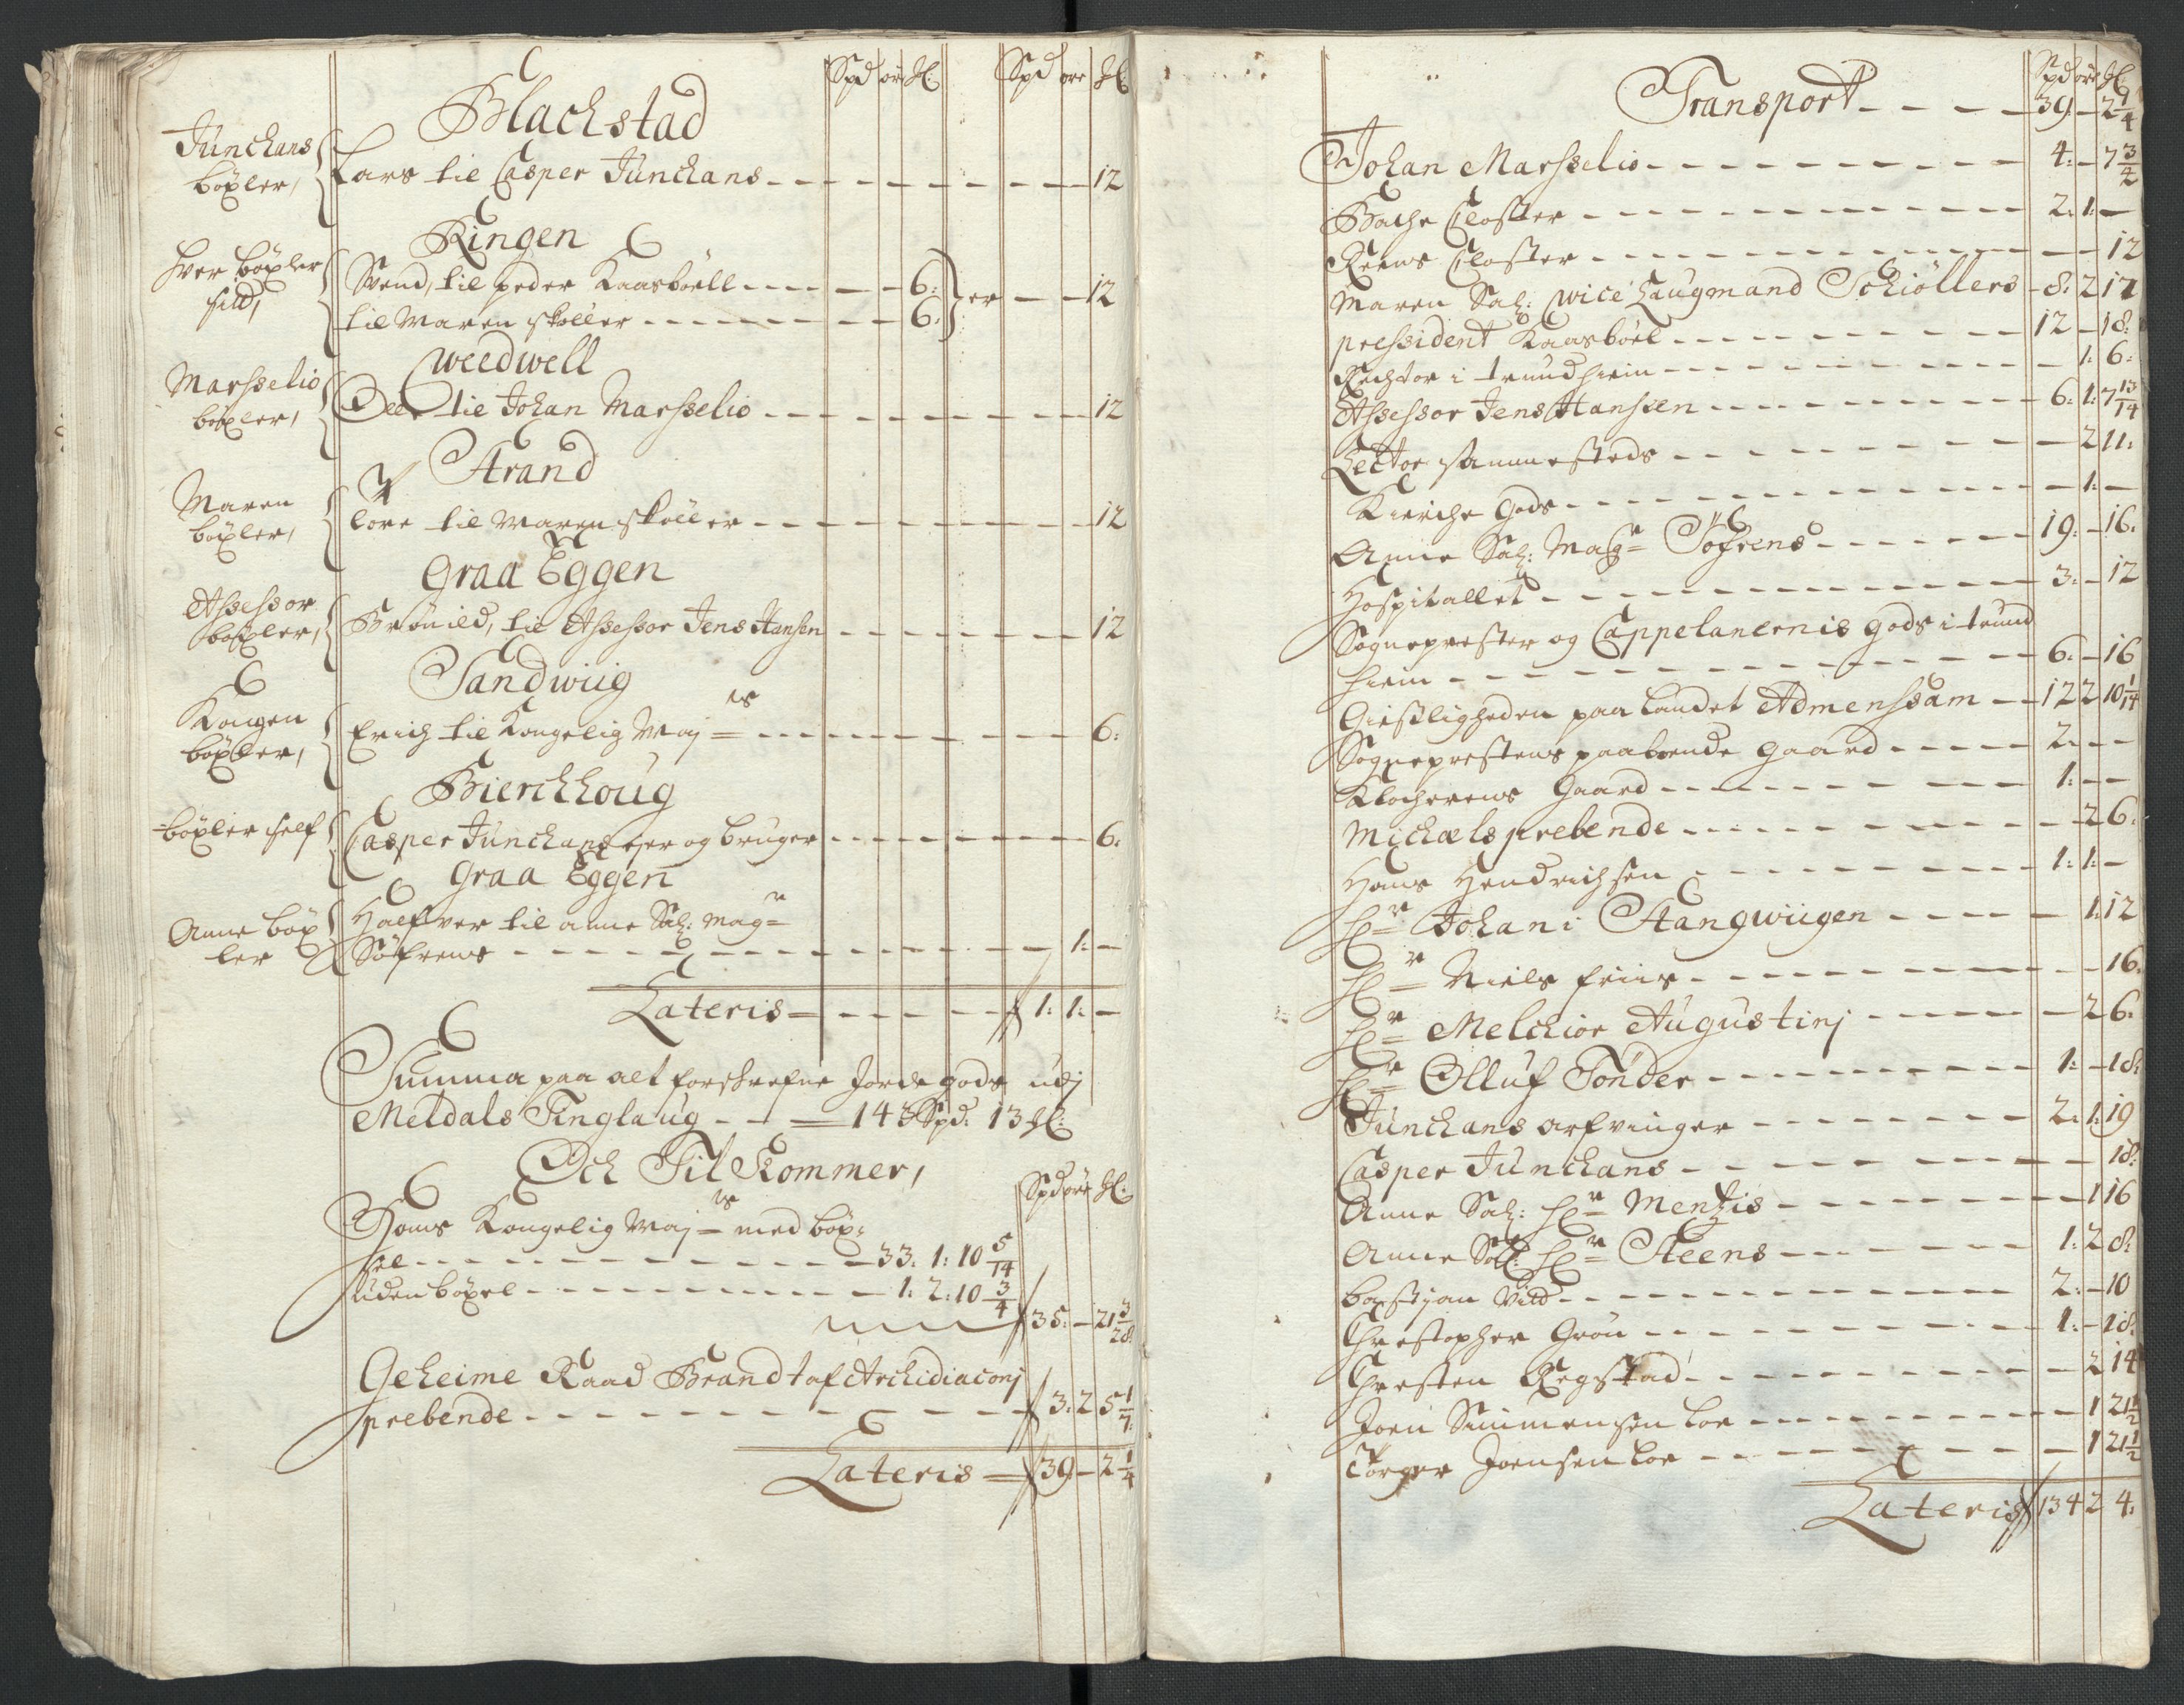 Spd ore ℔: Spd ore ℔
Blachstad
Junchans
böxler,
Lars til Casper Junchans - - - 12
Ringen
hver böxler
sitd,
Svend, til peder Kaasböell - - - 6:
til Maren skiöller - - - 6: } er - - 12
Weedwell
Marsselio
böxler,
Oele til Johan Marsselio - - - 12
Strand
Maren
böxler,
Tore til Maren skiöller - - - 12
Graa Eggen
Assessor
böxler,
Brönild, til Assessor Jens Hansen - - - 12
Sandwiig
Kongen
böxler,
Erich til Kongelig Maj ts - - - 6:
Bierchhoug
böxler self
Casper Junchans ejer og bruger - - - 6:
Graa Eggen
Anne böx
ler
Halfver til anne Sal: Mag r
Söfrens - - - 1: -
Lateris - - - 1: 1: -
Summa paa alt forskrefne Jordegods udj
Meldals Tinglaug - - 143 Spd: 13 ℔:
Och Til Kommer,
Spd ore ℔:
Hans Kongelig Maj ts med böx:
sel - - - 33: 1: 10 5/14
uden böxel - - - 1: 2: 10 3/4
35: - 21 3/28
Geheime Raad Brandt af Archidiaconj
prebende - - - 3: 2 5 1/7
Lateris - 39 - 2 1/4
Spd ore ℔
Transport - - - 39 - 2 1/4
Johan Marsselio - - - 4: - 7 3/4
Bache Closter - - - 2: 1: -
Reens Closter - - - 12
Maren Sal: Wice Laugmand Schiöllers - 8: 2 17
pressident Kaasböel - - - 12 - 18:
Rechtor i trundhiem - - - 1: 6:
Assessor Jens Hanssen - - - 6: 1: 7 13/14
Lector sammesteds - - - 2 11:
Kierche gods - - - 1: -
Anne Sal: Mag r Söfrens - - - 19: - 16:
Hospitallet - - - 3: - 12
Sogneprester og Cappelanernis gods i trund
hiem - - - 6: - 16
Giestligheden paa Landet Admenssam - - 12 2 10 1/14
Sogneprestens paaboende gaard - - - 2: - -
Klocherens Gaard - - - 1: - -
Michaels prebende - - - 2 6:
Hans Hendrichsen - - - 1: 1: -
Hr Johan i Stangwiigen - - - 1: 12
Hr Niels friis - - - 16:
Hr Melchior Augustinj - - - 2 6:
Hr Olluf Tönder - - - 1: - 18:
Junchans arfvinger - - - 2: 1: 19
Casper Junchans - - - 18:
Anne Sal: Hr Mentzis - - - 1 16
Anne Sal: Hr Steens - - - 1: 2 8:
bastian Vild - - - 2: - 10
Christopher Grön - - - 1: - 18:
Christen Regstad - - - 2 14
Joen Simmensen Loe - - - 1 21 1/2
Torger Joensen Loe - - - 1 21 1/2
Lateris 134 2 4: